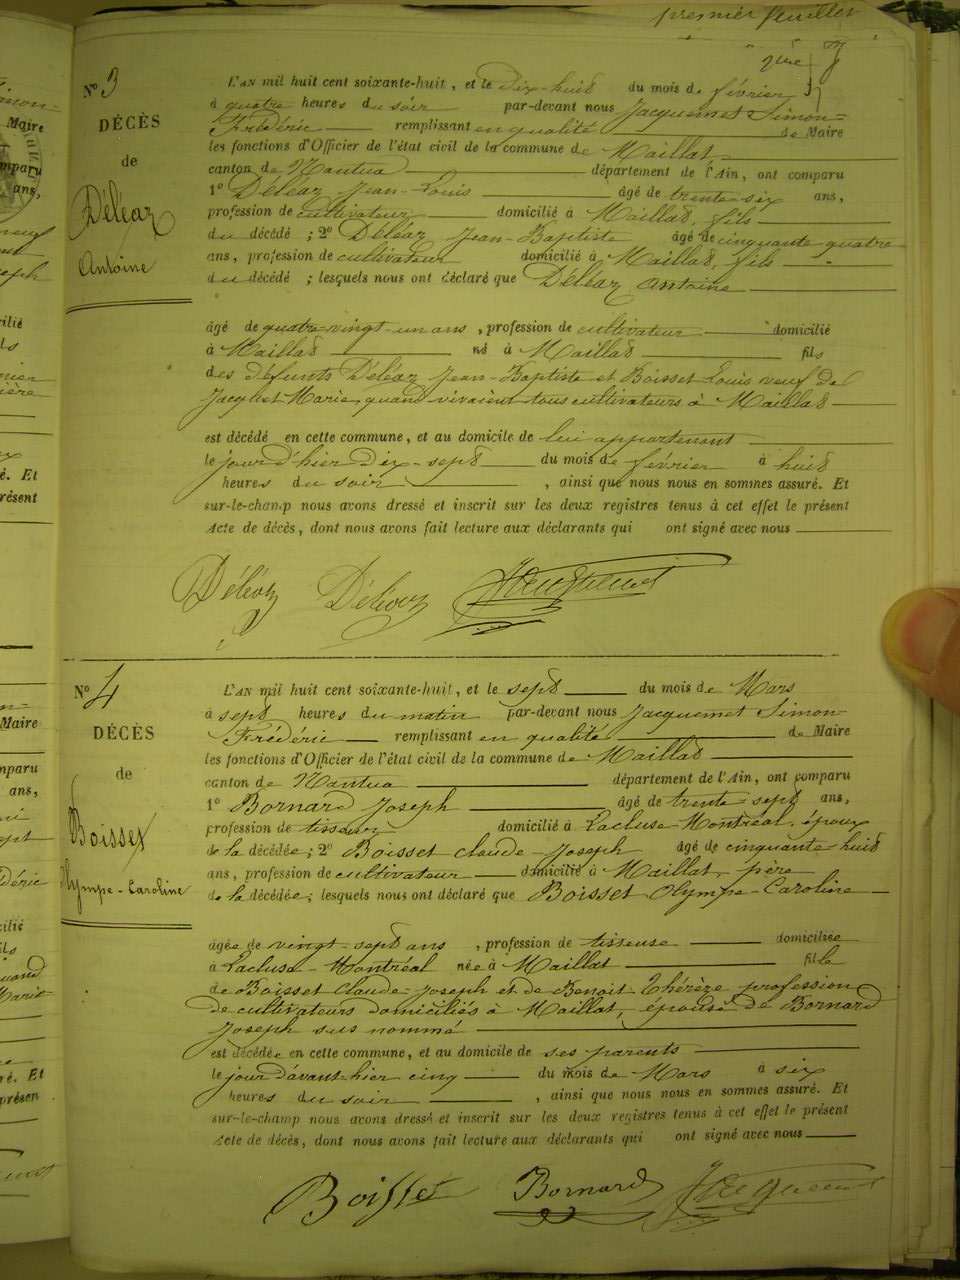 premier feuillet
2me
N° 3
DÉCÈS
de
Déléaz
Antoine
L'AN mil huit cent soixante-huit, et le dix-huit du mois de février
à quatre heures du soir par-devant nous Jacquemet Simon-
Frédéric remplissant en qualité de Maire
les fonctions d'Officier de l'état civil de la commune de Maillat
canton de Nantua département de l'Ain, ont comparu
1° Déléaz Jean-Louis âgé de trente-six ans,
profession de cultivateur domicilié à Maillat, fils
du décédé ; 2° Déléaz Jean-Baptiste âgé de cinquante quatre
ans, profession de cultivateur domicilié à Maillat, fils
du décédé ; lesquels nous ont déclaré que Déléaz Antoine
âgé de quatre-vingt-un ans , profession de cultivateur domicilié
à Maillat né à Maillat fils
des défunts Déléaz Jean-Baptiste et Boisset Louis veuf de
Jacquet Marie, quand vivaient tous cultivateurs à Maillat
est décédé en cette commune, et au domicile de lui appartenant
le jour d'hier dix-sept du mois de février à huit
heures du soir , ainsi que nous nous en sommes assuré. Et
sur-le-champ nous avons dressé et inscrit sur les deux registres tenus à cet effet le présent
Acte de décès, dont nous avons fait lecture aux déclarants qui ont signé avec nous
Déléaz Déléaz Jacquemet
N° 4
DÉCÈS
de
Boisset
Olympe-Caroline
L'AN mil huit cent soixante-huit, et le sept du mois de Mars
à sept heures du matin par-devant nous Jacquemet Simon-
Frédéric remplissant en qualité de Maire
les fonctions d'Officier de l'état civil de la commune de Maillat
canton de Nantua département de l'Ain, ont comparu
1° Bornard Joseph âgé de trente-sept ans,
profession de tisseur domicilié à Lacluse-Montréal, époux
de la décédée; 2° Boisset claude-Joseph âgé de cinquante huit
ans, profession de cultivateur domicilié à Maillat, père
de la décédée; lesquels nous ont déclaré que Boisset Olympe-Caroline
âgée de vingt-sept ans , profession de tisseuse domiciliée
à Lacluse-Montréal née à Maillat fille
de Boisset claude-Joseph et de Benoit Thérèze profession
de cultivateurs domiciliés à Maillat, épouse de Bornard
Joseph sus nommé
est décédée en cette commune, et au domicile de ses parents
le jour d'avant-hier cinq du mois de Mars à six
heures du soir , ainsi que nous nous en sommes assuré. Et
sur-le-champ nous avons dressé et inscrit sur les deux registres tenus à cet effet le présent
Acte de décès, dont nous avons fait lecture aux déclarants qui ont signé avec nous
Boisset Bornard Jacquemet